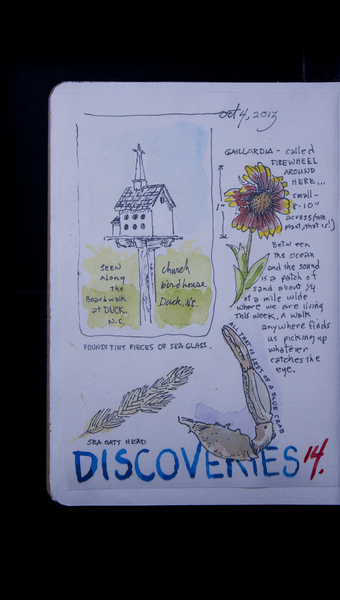 oct 4, 2013
GAILLARDIA - called
FIREWHEEL
AROUND
HERE...
small -
8-10"
1"
SEEN
ALONG
the
Boardwalk
at DUCK,
N.C.
church
birdhouse
Duck, NC.
Between
the ocean
and the sound
is a patch of
sand about 3/4
of a mile wide
where we are living
this week. A walk
anywhere finds
us picking up
whatever
catches the
eye.
FOUND 5 TINY PIECES OF SEA GLASS.
ALL THAT IS LEFT OF A BLUE CRAB
SEA OATS HEAD
DISCOVERIES 14.